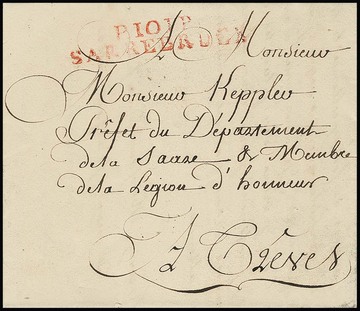 P.101.P.
SARREBRUCK
A Monsieur
Monsieur Keppler
Préfet du Département
de la Saare & Membre
de la Légion d'honneur
A Trèves